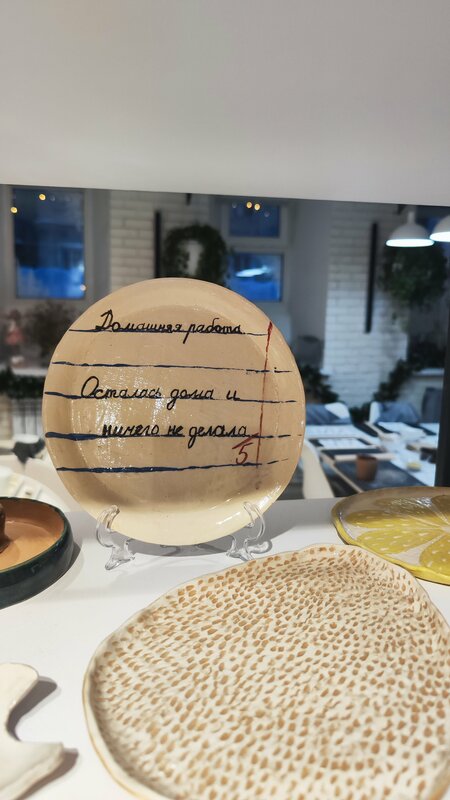 Домашняя работа
Осталась дома и
ничего не делала
5